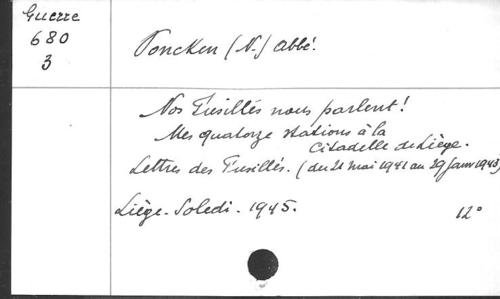 Guerre
680
3
Poncken (N.) abbé.
Nos Fusillés nous parlent!
Mes quatorze stations à la
Citadelle de Liège.
Lettres des Fusillés. (du 21 mai 1941 au 29 janv 1943)
Liège. Soledi. 1945. 12°